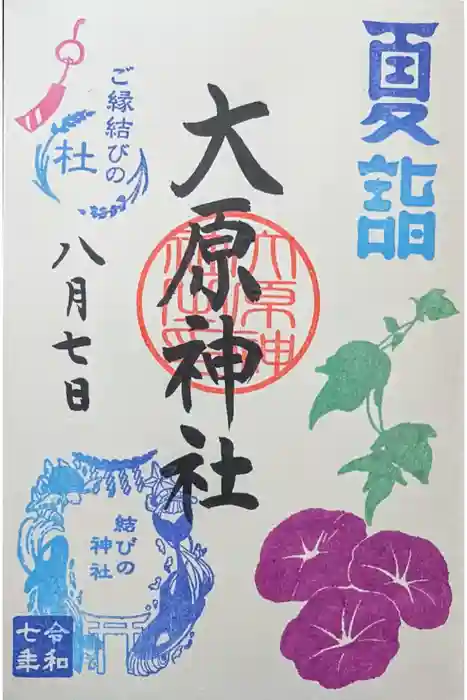 夏詣
大原神社
ご縁結びの
杜
八月七日
結びの
神社
令和
七年